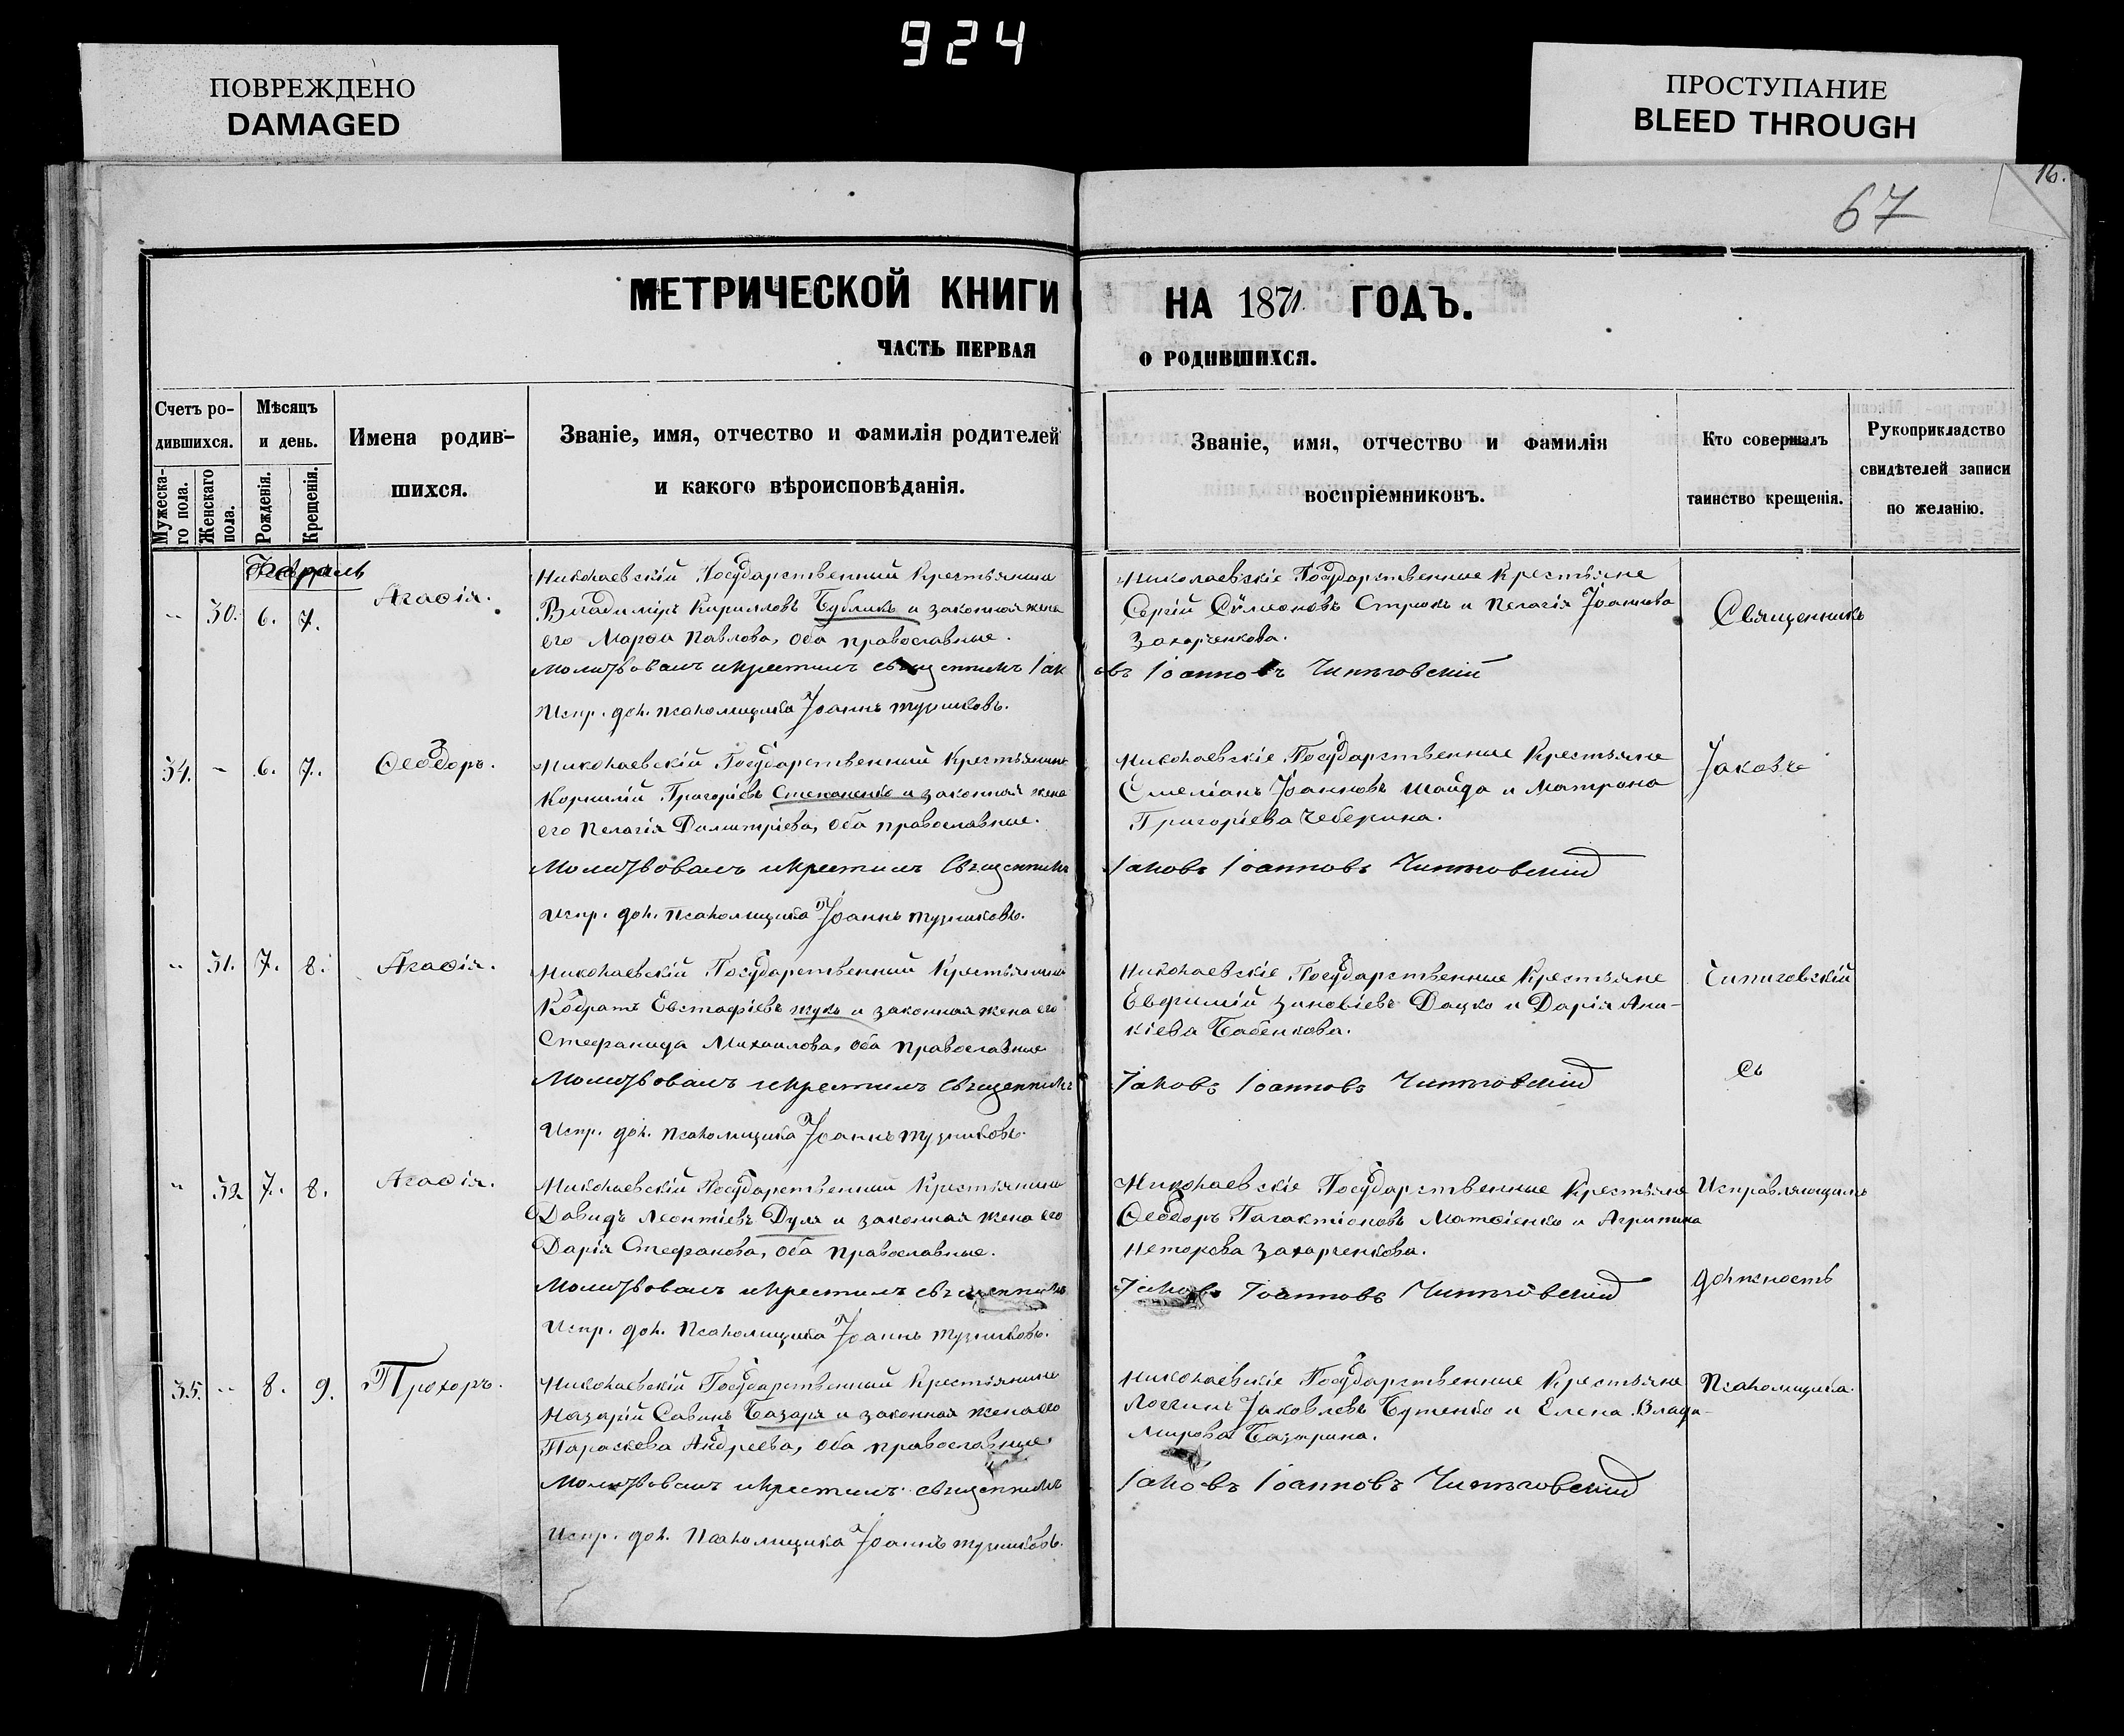 924
ПОВРЕЖДЕНО
DAMAGED
ПРОСТУПАНИЕ
BLEED THROUGH
16.
67
МЕТРИЧЕСКОЙ КНИГИ НА 1871 ГОДЪ.
ЧАСТЬ ПЕРВАЯ О РОДИВШИХСЯ.
Счетъ ро-
дившихся.
Мужеска-
го пола.
Женскаго
пола.
Мѣсяцъ
и день.
Рожденія.
Крещенія.
Имена родив-
шихся.
Званіе, имя, отчество и фамилія родителей
и какого вѣроисповѣданія.
Званіе, имя, отчество и фамилія
воспріемниковъ.
Кто совершалъ
таинство крещенія.
Рукоприкладство
свидѣтелей записи
по желанію.
Февраль
„ 30. 6. 7.
Агаѳія.
Николаевскій Государственный Крестьянинъ
Владиміръ Кирилловъ Бубликъ и законная жена
его Марѳа Павлова, оба православные.
Молитвовалъ и крестилъ священникъ Іак
Испр. дол. псаломщика Іоаннъ
Николаевскіе Государственные Крестьяне
Сергій Сѵмеоновъ Стрюкъ и Пелагія Іоаннова
Захарченкова.
овъ Іоанновъ Чипиговскій
Священникъ
34. „ 6. 7.
Ѳеодоръ.
Николаевскій Государственный Крестьянинъ
Корнилій Григоріевъ Степаненко и законная жена
его Пелагія Димитріева, оба православные.
Молитвовалъ и крестилъ Священникъ
Испр. дол. Псаломщика Іоаннъ
Николаевскіе Государственные Крестьяне
Емеліанъ Іоанновъ Шайда и Матрона
Григоріева Чеберина.
Іаковъ Іоанновъ Чипиговскій
Іаковъ
„ 31. 7. 8.
Агаѳія.
Николаевскій Государственный Крестьянинъ
Кодратъ Евстафіевъ Жукъ и законная жена его
Стефанида Михаилова, оба православные
Молитвовалъ и крестилъ священникъ
Испр. дол. псаломщика Іоаннъ
Николаевскіе Государственные Крестьяне
Евфимій Зиновіевъ Дацко и Дарія Ани-
кіева Бабенкова.
Іаковъ Іоанновъ Чипиговскій
Чипиговскій
съ
„ 32 7. 8.
Агаѳія.
Николаевскій Государственный Крестьянинъ
Давидъ Леонтіевъ Дуля и законная жена его
Дарія Стефанова, оба православные.
Молитвовалъ и крестилъ священникъ
Испр. дол. Псаломщика Іоаннъ
Николаевскіе Государственные Крестьяне
Ѳеодоръ Галактіоновъ Матвіенко и Агрипина
Несторева Захарченкова.
Іаковъ Іоанновъ Чипиговскій
Исправляющимъ
должность
35. „ 8. 9.
Прохоръ.
Николаевскій Государственный Крестьянинъ
Назарій Савинъ Базаря и законная жена его
Параскева Андреева, оба православные
Молитвовалъ и крестилъ священникъ
Испр. дол. Псаломщика Іоаннъ
Николаевскіе Государственные Крестьяне
Логгинъ Іаковлевъ Бутенко и Елена Влади-
мирова Базарина.
Іаковъ Іоанновъ Чипиговскій
Псаломщика.